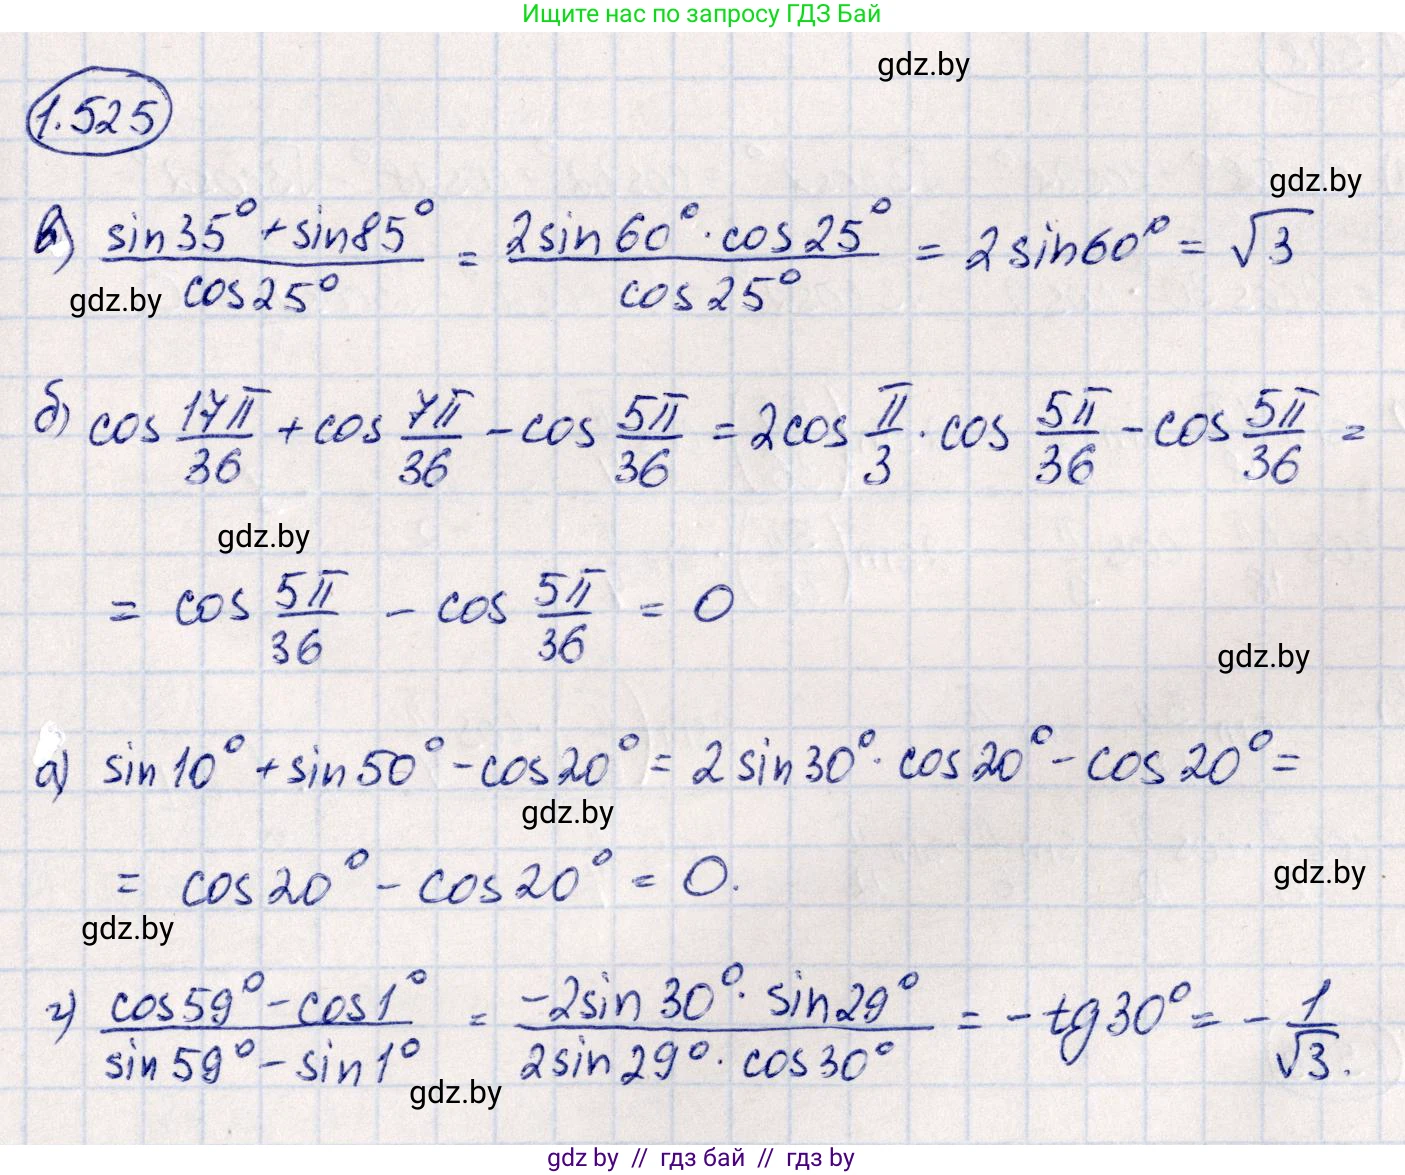 Ищите нас по запросу ГДЗ Бай
gdz.by
1.525
gdz.by
в) (sin35° + sin85°)/cos25° = (2sin60° · cos25°)/cos25° = 2sin60° = √3
gdz.by
б) cos 17π/36 + cos 7π/36 - cos 5π/36 = 2cos π/3 · cos 5π/36 - cos 5π/36 =
gdz.by
= cos 5π/36 - cos 5π/36 = 0
gdz.by
а) sin10° + sin50° - cos20° = 2sin30° · cos20° - cos20° =
gdz.by
= cos20° - cos20° = 0.
gdz.by
gdz.by
г) (cos59° - cos1°)/(sin59° - sin1°) = (-2sin30° · sin29°)/(2sin29° · cos30°) = -tg30° = - 1/√3.
gdz.by
gdz by // гдз бай // гдз by